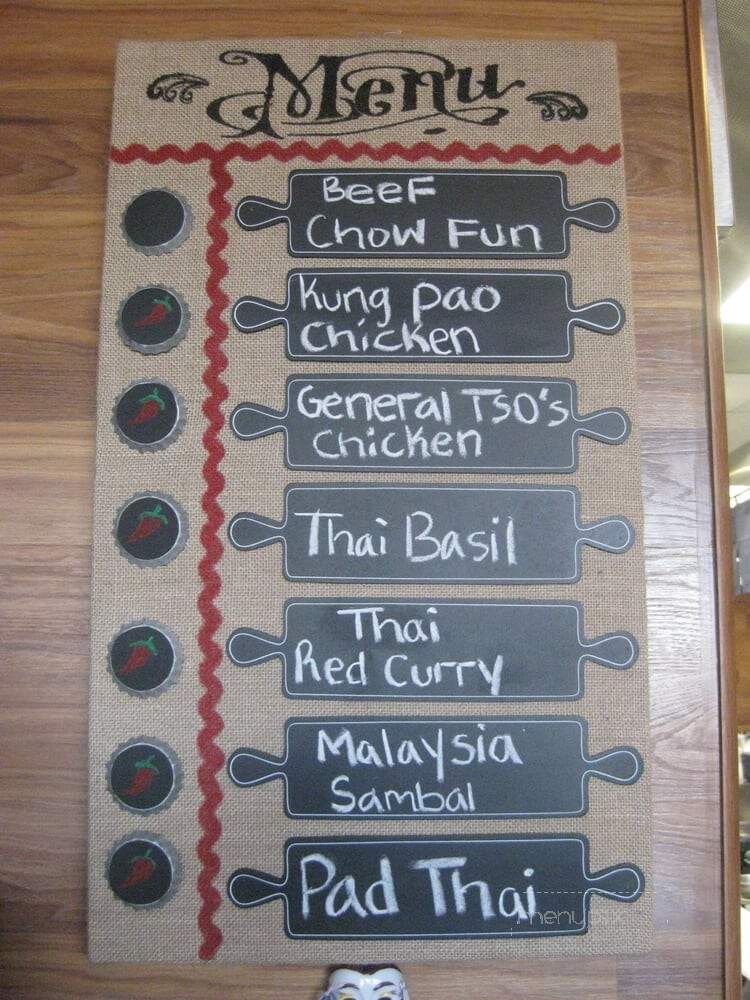 Menu
Beef
Chow Fun
Kung Pao
Chicken
General Tso's
Chicken
Thai Basil
Thai
Red Curry
Malaysia
Sambal
Pad Thai